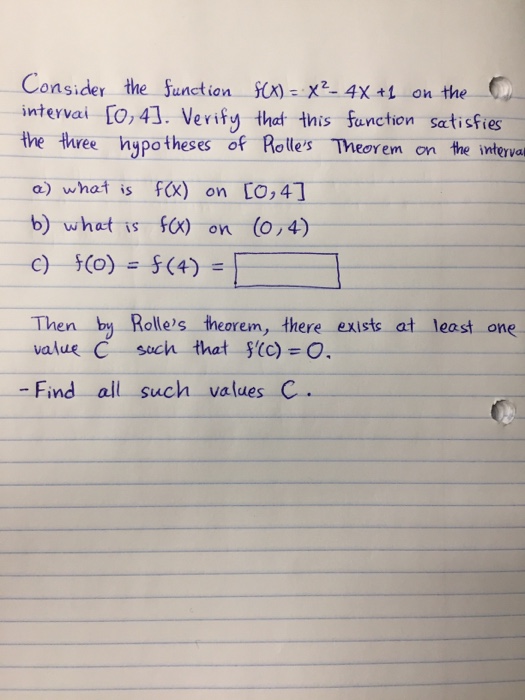 Consider the function f(x) = x² - 4x + 1 on the
interval [0, 4]. Verify that this function satisfies
the three hypotheses of Rolle's Theorem on the interval
a) what is f(x) on [0,4]
b) what is f(x) on (0,4)
c) f(0) = f(4) =
Then by Rolle's theorem, there exists at least one
value C such that f'(c) = 0.
- Find all such values C.